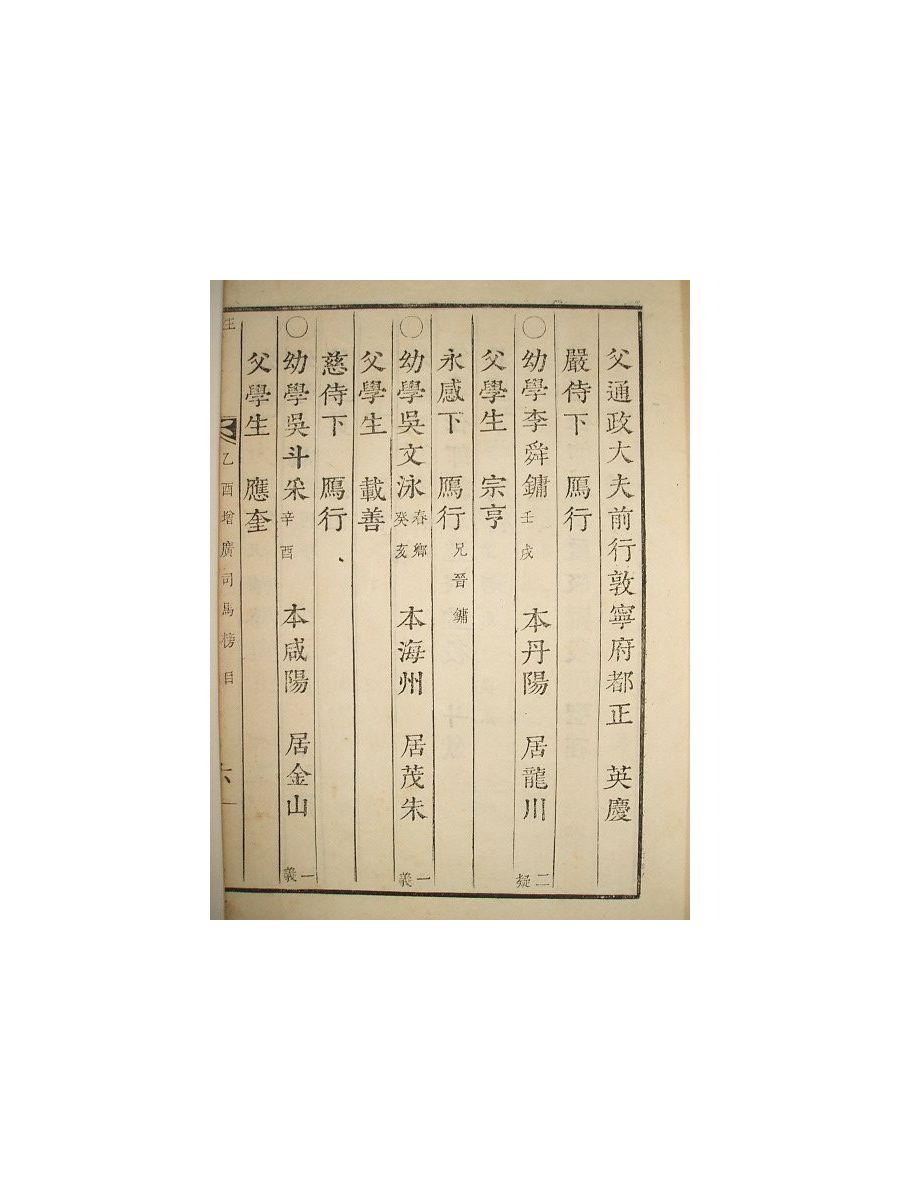 父通政大夫前行敦寧府都正 英慶
嚴侍下 鴈行
○幼學李舜鏞 壬戌 本丹陽 居龍川 二疑
父學生 宗亨
永感下 鴈行 兄晉鏞
○幼學吳文泳 春卿 癸亥 本海州 居茂朱 一義
父學生 載善
慈侍下 鴈行
○幼學吳斗采 辛酉 本咸陽 居金山 一義
父學生 應奎
乙酉增廣司馬榜目 六